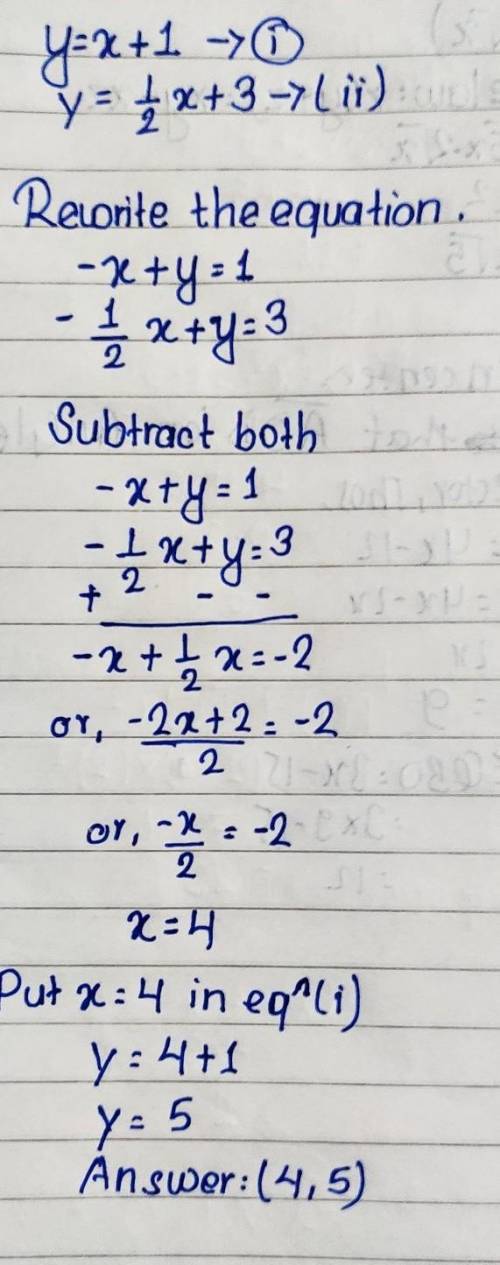 y=x+1 → (i)
y = 1/2 x+3 → (ii)
Rewrite the equation.
-x+y=1
- 1/2 x+y=3
Subtract both
-x+y=1
- 1/2 x+y=3
+ - -
-x + 1/2 x = -2
or, (-2x+2)/2 = -2
or, -x/2 = -2
x=4
Put x=4 in eqn(i)
y = 4+1
y = 5
Answer: (4,5)